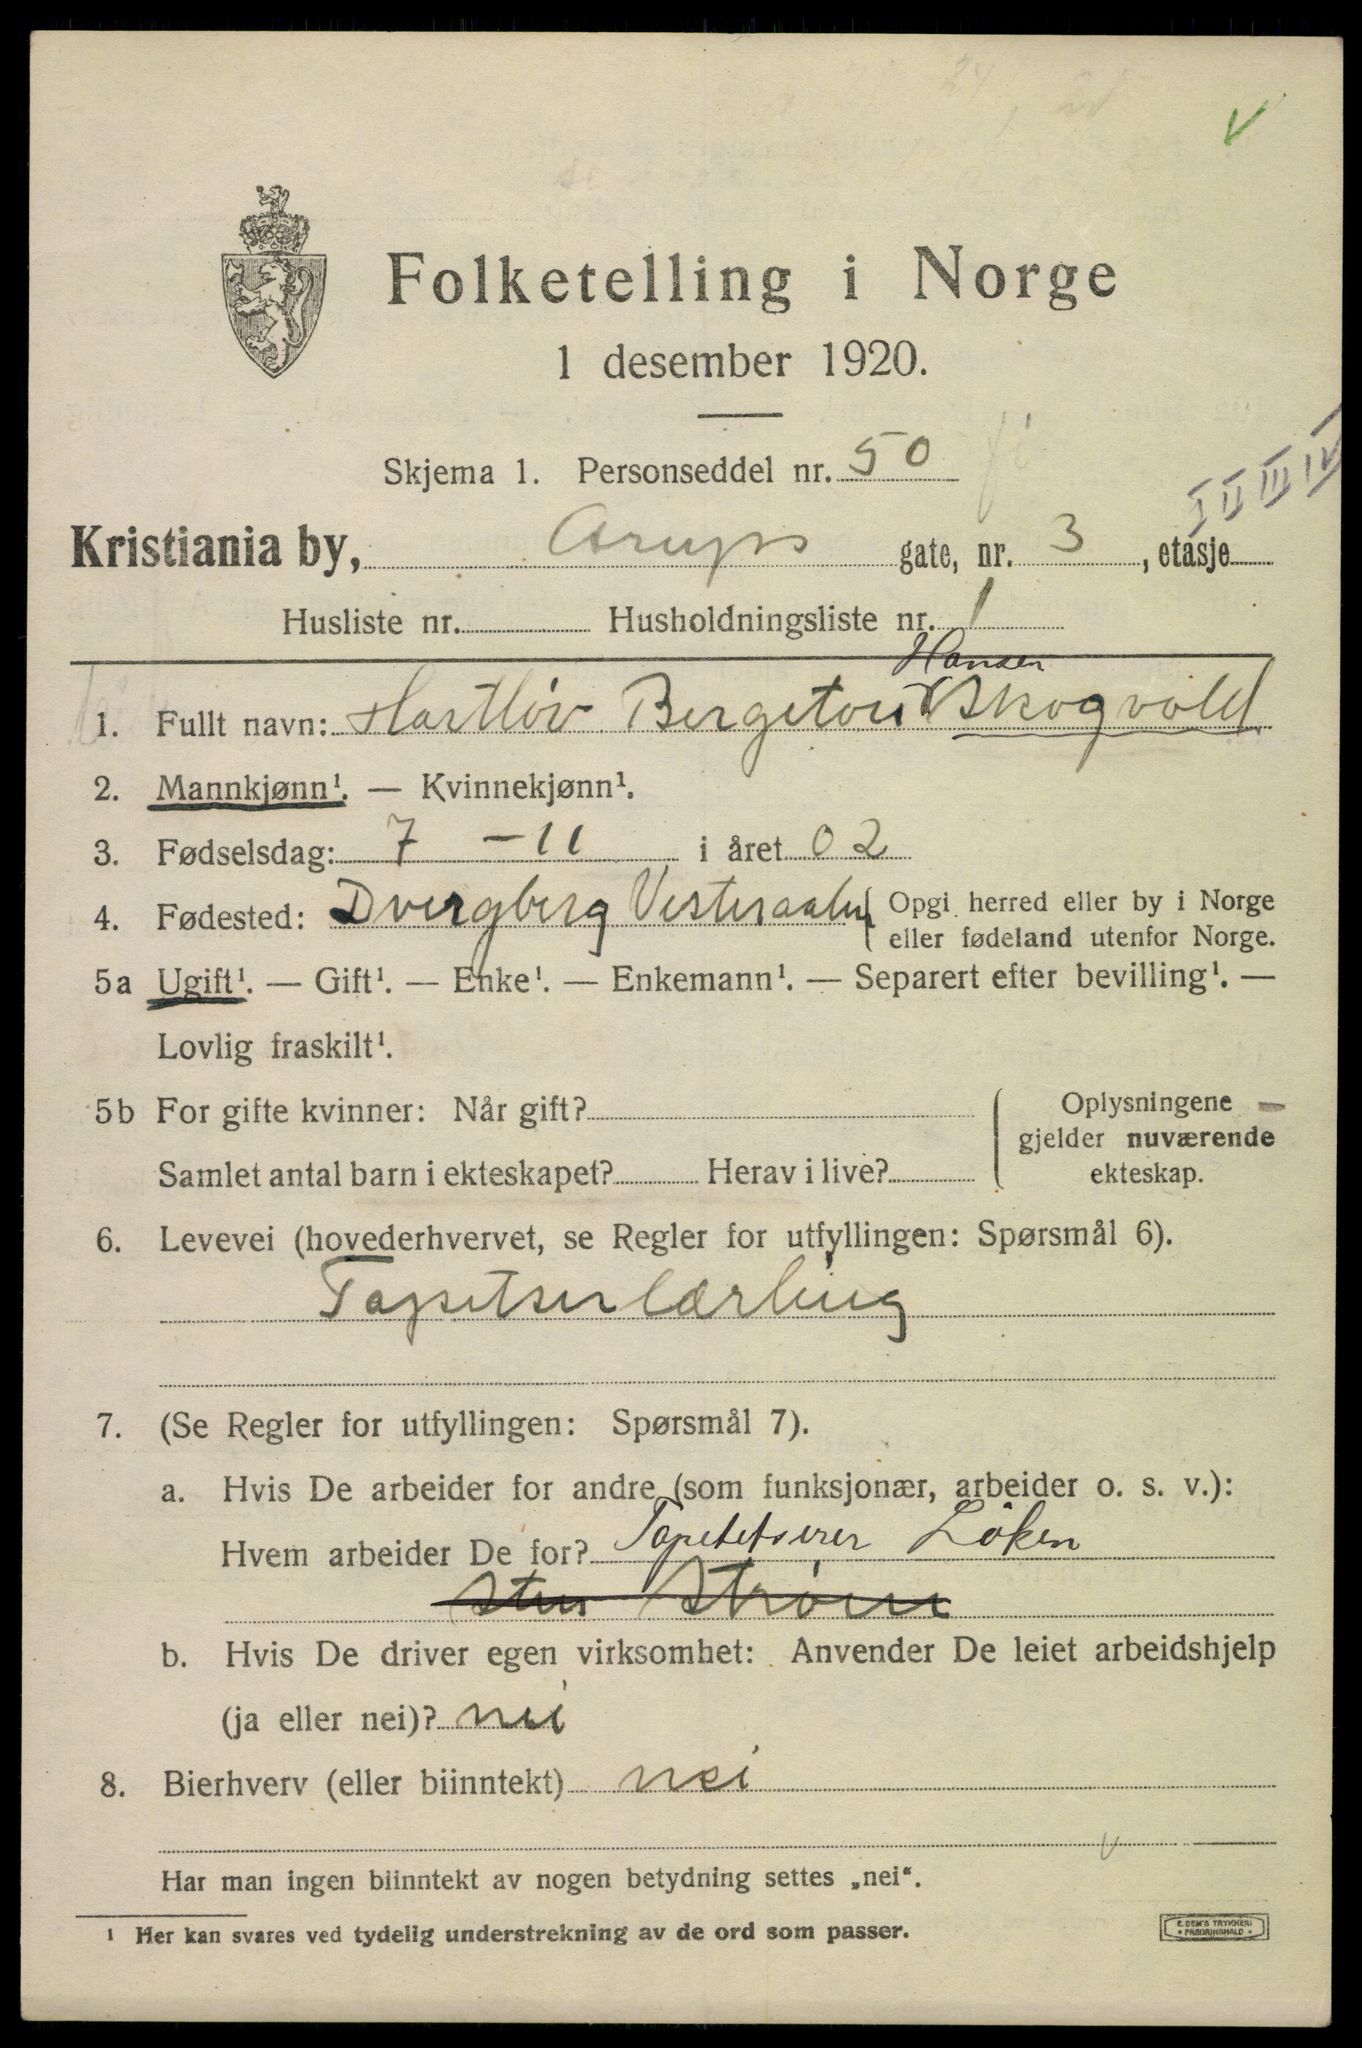 Folketelling i Norge
1 desember 1920.
Skjema 1. Personseddel nr. 50
I II III IV
Kristiania by, Arups gate, nr. 3, etasje
Husliste nr. Husholdningsliste nr. 1
Hansen
1. Fullt navn: Hartløv Bergeton Skogvold
2. Mannkjønn¹. — Kvinnekjønn¹.
3. Fødselsdag: 7 – 11 i året 02
4. Fødested: Dvergberg Vesteraalen { Opgi herred eller by i Norge
eller fødeland utenfor Norge.
5a Ugift¹. — Gift¹. — Enke¹. — Enkemann¹. — Separert efter bevilling¹. —
Lovlig fraskilt¹.
5b For gifte kvinner: Når gift?
Samlet antal barn i ekteskapet? Herav i live?
Oplysningene
gjelder nuværende
ekteskap.
6. Levevei (hovederhvervet, se Regler for utfyllingen: Spørsmål 6).
Tapetserlærling
7. (Se Regler for utfyllingen: Spørsmål 7).
a. Hvis De arbeider for andre (som funksjonær, arbeider o. s. v.):
Hvem arbeider De for? Tapetetserer Løken
Strøm
b. Hvis De driver egen virksomhet: Anvender De leiet arbeidshjelp
(ja eller nei)? nei
8. Bierhverv (eller biinntekt) nei
Har man ingen biinntekt av nogen betydning settes „nei“.
¹ Her kan svares ved tydelig understrekning av de ord som passer.
E. SEM'S TRYKKERI
• FREDRIKSHALD •